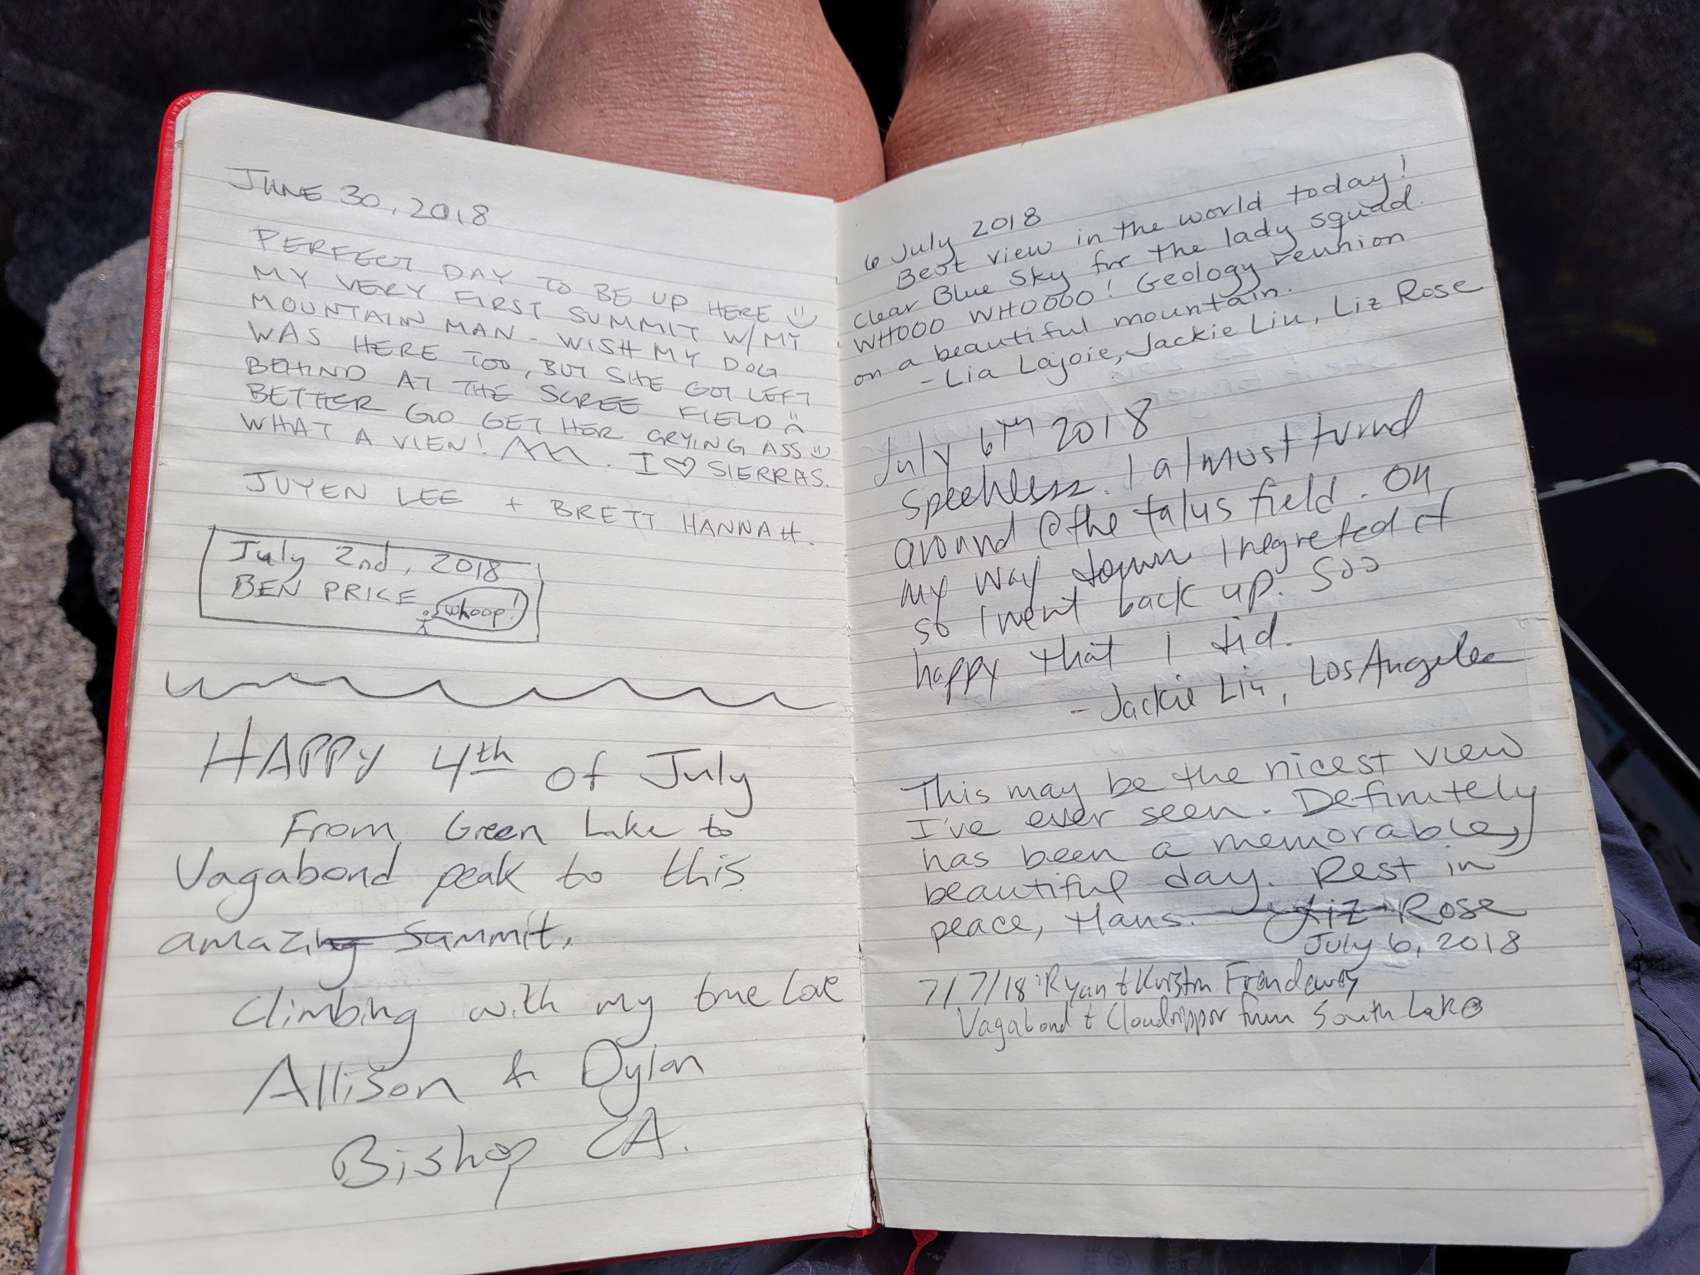 JUNE 30, 2018
PERFECT DAY TO BE UP HERE
MY VERY FIRST SUMMIT W/ MY
MOUNTAIN MAN - WISH MY DOG
WAS HERE TOO, BUT SHE GOT LEFT
BEHIND AT THE SCREE FIELD
BETTER GO GET HER CRYING ASS
WHAT A VIEW! I ♡ SIERRAS.
JUYEN LEE + BRETT HANNAH.
July 2nd, 2018
BEN PRICE
whoop!
HAPPY 4th of July
From Green Lake to
Vagabond peak to this
amazing summit.
Climbing with my true love
Allison & Dylan
Bishop CA.
6 July 2018
Best view in the world today!
Clear Blue Sky for the lady squad.
WHOOO WHOOOO! Geology reunion
on a beautiful mountain.
- Lia Lajoie, Jackie Liu, Liz Rose
July 6TH 2018
Speehless. I almost turnd
around @ the talus field. On
my way down I regreted it
so I went back up. Soo
happy that I did.
- Jackie Liu, Los Angeles
This may be the nicest view
I've ever seen. Definitely
has been a memorable,
beautiful day. Rest in
peace, Hans. Liz Rose
July 6, 2018
7/7/18: Ryan & Kristin
Vagabond & Cloudripper from South Lake